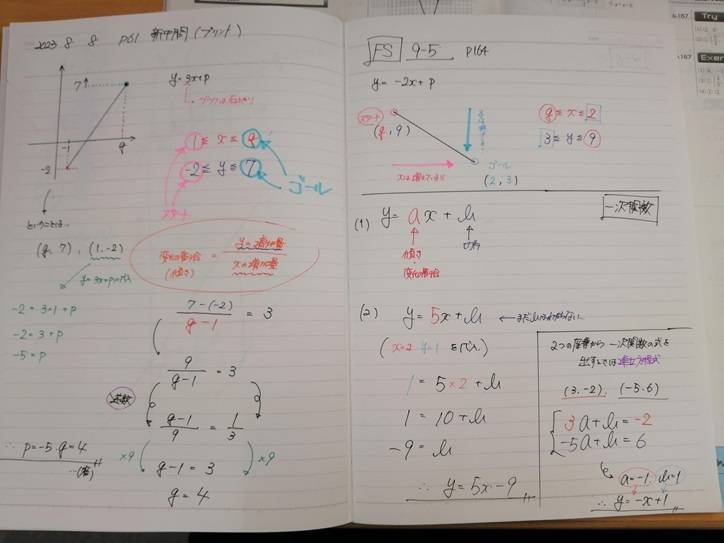 2023 8 8 P61 新中問(プリント)
y=3x+p
7
-1
q
-2
1≦x≦q
-2≦y≦7
スタート
ゴール
ということは…
(q, 7), (1, -2)
変化の割合
(傾き)
=
yの増加量
xの増加量
-2=3×1+p
-2=3+p
-5=p
7-(-2)
q-1
=3
9
q-1
=3
逆数
q-1
9
=
1
3
×9
×9
q-1=3
q=4
∴ p=-5 q=4
…(答)
FS 9-5 P164
y=-2x+p
スタート
(q, 9)
q≦x≦2
3≦y≦9
ゴール
(2, 3)
一次関数
(1) y=ax+b
傾き
変化の割合
切片
(2) y=5x+b
(x=2 y=1 を代入
1=5×2+b
1=10+b
-9=b
∴ y=5x-9
2つの座標から一次関数の式を
出すときは連立方程式
(3, -2) (-5, 6)
3a+b=-2
-5a+b=6
a=-1 b=1
∴ y=-x+1
P.167
Try
P.167
Exer